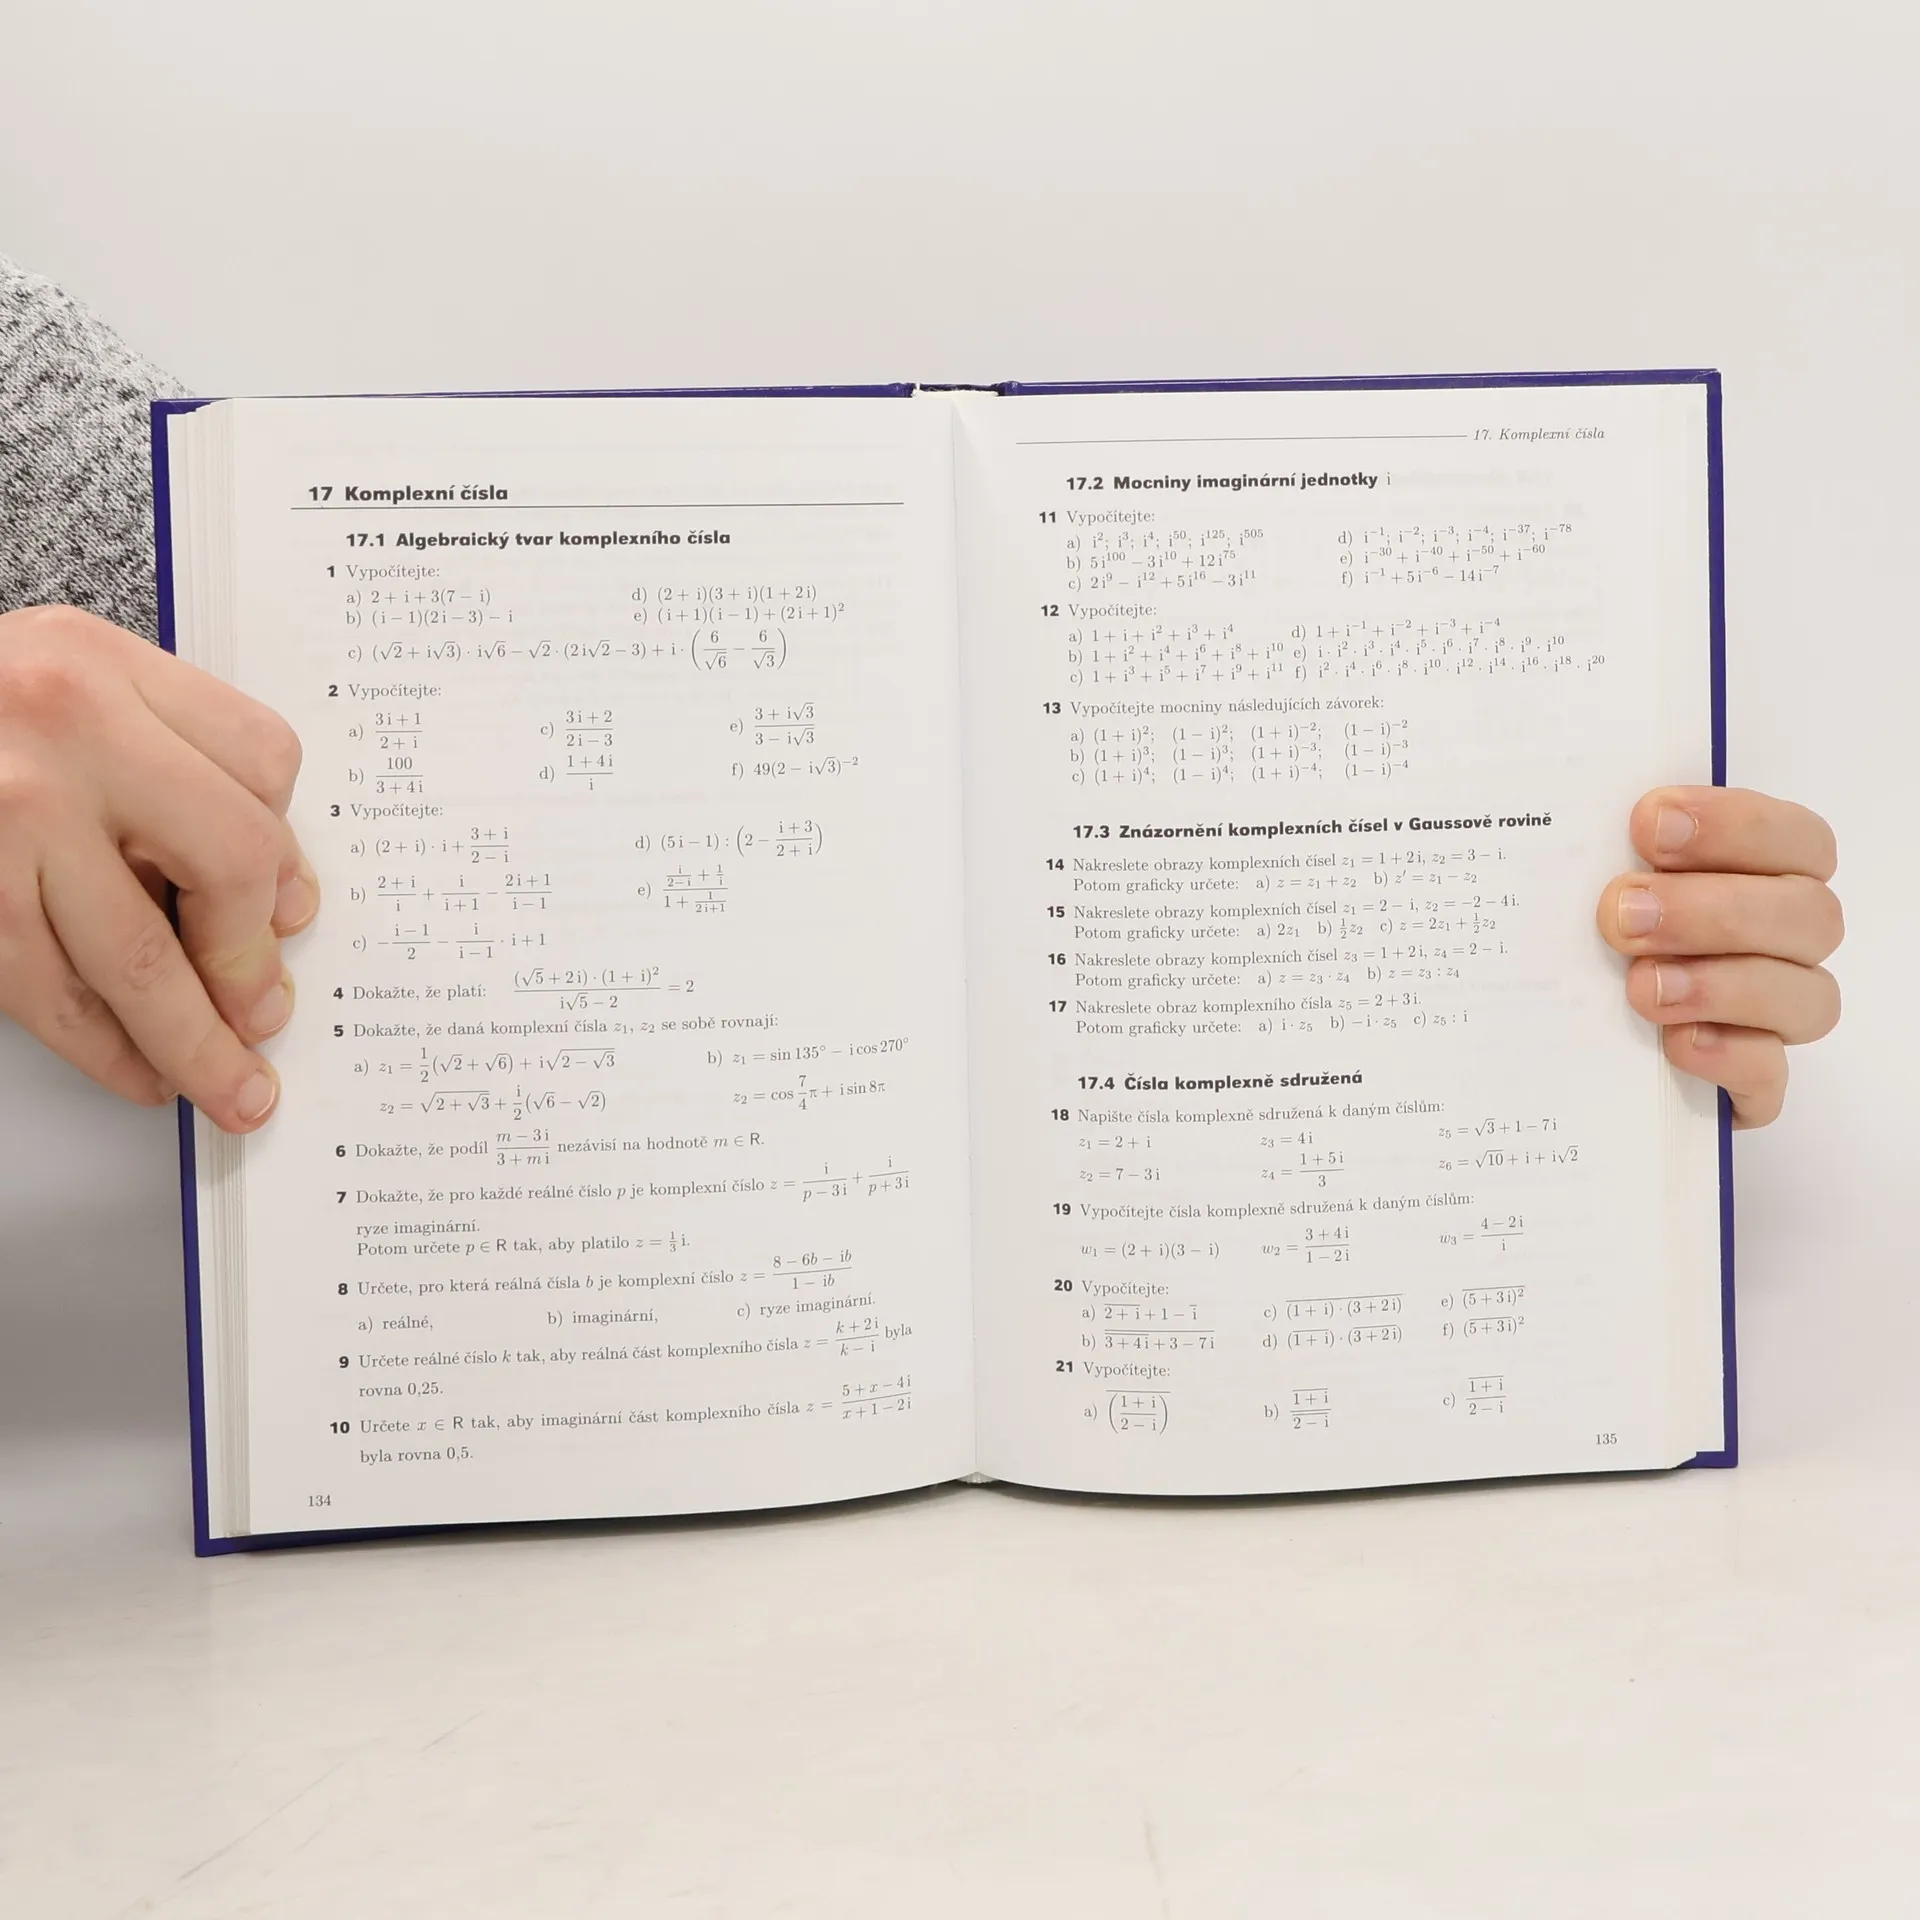 17 Komplexní čísla
17.1 Algebraický tvar komplexního čísla
1 Vypočítejte:
a) 2 + i + 3(7 − i) d) (2 + i)(3 + i)(1 + 2i)
b) (i − 1)(2i − 3) − i e) (i + 1)(i − 1) + (2i + 1)²
c) (√2 + i√3) · i√6 − √2 · (2i√2 − 3) + i · (6/√6 − 6/√3)
2 Vypočítejte:
a) (3i + 1)/(2 + i) c) (3i + 2)/(2i − 3) e) (3 + i√3)/(3 − i√3)
b) 100/(3 + 4i) d) (1 + 4i)/i f) 49(2 − i√3)⁻²
3 Vypočítejte:
a) (2 + i) · i + (3 + i)/(2 − i) d) (5i − 1) : (2 − (i + 3)/(2 + i))
b) (2 + i)/i + i/(i + 1) − (2i + 1)/(i − 1) e) (i/(2−i) + 1/i)/(1 + 1/(2i+1))
c) −(i − 1)/2 − i/(i − 1) · i + 1
4 Dokažte, že platí: ((√5 + 2i) · (1 + i)²)/(i√5 − 2) = 2
5 Dokažte, že daná komplexní čísla z₁, z₂ se sobě rovnají:
a) z₁ = 1/2(√2 + √6) + i√(2 − √3) b) z₁ = sin 135° − i cos 270°
z₂ = √(2 + √3) + i/2(√6 − √2) z₂ = cos 7/4π + i sin 8π
6 Dokažte, že podíl (m − 3i)/(3 + mi) nezávisí na hodnotě m ∈ R.
7 Dokažte, že pro každé reálné číslo p je komplexní číslo z = i/(p − 3i) + i/(p + 3i)
ryze imaginární.
Potom určete p ∈ R tak, aby platilo z = 1/3 i.
8 Určete, pro která reálná čísla b je komplexní číslo z = (8 − 6b − ib)/(1 − ib)
a) reálné, b) imaginární, c) ryze imaginární.
9 Určete reálné číslo k tak, aby reálná část komplexního čísla z = (k + 2i)/(k − i) byla
rovna 0,25.
10 Určete x ∈ R tak, aby imaginární část komplexního čísla z = (5 + x − 4i)/(x + 1 − 2i)
byla rovna 0,5.
134
17. Komplexní čísla
17.2 Mocniny imaginární jednotky i
11 Vypočítejte:
a) i²; i³; i⁴; i⁵⁰; i¹²⁵; i⁵⁰⁵ d) i⁻¹; i⁻²; i⁻³; i⁻⁴; i⁻³⁷; i⁻⁷⁸
b) 5i¹⁰⁰ − 3i¹⁰ + 12i⁷⁵ e) i⁻³⁰ + i⁻⁴⁰ + i⁻⁵⁰ + i⁻⁶⁰
c) 2i⁹ − i¹² + 5i¹⁶ − 3i¹¹ f) i⁻¹ + 5i⁻⁶ − 14i⁻⁷
12 Vypočítejte:
a) 1 + i + i² + i³ + i⁴ d) 1 + i⁻¹ + i⁻² + i⁻³ + i⁻⁴
b) 1 + i² + i⁴ + i⁶ + i⁸ + i¹⁰ e) i · i² · i³ · i⁴ · i⁵ · i⁶ · i⁷ · i⁸ · i⁹ · i¹⁰
c) 1 + i³ + i⁵ + i⁷ + i⁹ + i¹¹ f) i² · i⁴ · i⁶ · i⁸ · i¹⁰ · i¹² · i¹⁴ · i¹⁶ · i¹⁸ · i²⁰
13 Vypočítejte mocniny následujících závorek:
a) (1 + i)²; (1 − i)²; (1 + i)⁻²; (1 − i)⁻²
b) (1 + i)³; (1 − i)³; (1 + i)⁻³; (1 − i)⁻³
c) (1 + i)⁴; (1 − i)⁴; (1 + i)⁻⁴; (1 − i)⁻⁴
17.3 Znázornění komplexních čísel v Gaussově rovině
14 Nakreslete obrazy komplexních čísel z₁ = 1 + 2i, z₂ = 3 − i.
Potom graficky určete: a) z = z₁ + z₂ b) z′ = z₁ − z₂
15 Nakreslete obrazy komplexních čísel z₁ = 2 − i, z₂ = −2 − 4i.
Potom graficky určete: a) 2z₁ b) 1/2 z₂ c) z = 2z₁ + 1/2 z₂
16 Nakreslete obrazy komplexních čísel z₃ = 1 + 2i, z₄ = 2 − i.
Potom graficky určete: a) z = z₃ · z₄ b) z = z₃ : z₄
17 Nakreslete obraz komplexního čísla z₅ = 2 + 3i.
Potom graficky určete: a) i · z₅ b) −i · z₅ c) z₅ : i
17.4 Čísla komplexně sdružená
18 Napište čísla komplexně sdružená k daným číslům:
z₁ = 2 + i z₃ = 4i z₅ = √3 + 1 − 7i
z₂ = 7 − 3i z₄ = (1 + 5i)/3 z₆ = √10 + i + i√2
19 Vypočítejte čísla komplexně sdružená k daným číslům:
w₁ = (2 + i)(3 − i) w₂ = (3 + 4i)/(1 − 2i) w₃ = (4 − 2i)/i
20 Vypočítejte:
a) 2̅ ̅+̅ ̅i̅ + 1 − i̅ c) (̅1̅ ̅+̅ ̅i̅)̅ ̅·̅ ̅(̅3̅ ̅+̅ ̅2̅i̅)̅ e) (̅5̅ ̅+̅ ̅3̅i̅)̅²̅
b) 3̅ ̅+̅ ̅4̅i̅ ̅+̅ ̅3̅ ̅−̅ ̅7̅i̅ d) (1̅ ̅+̅ ̅i̅) · (3̅ ̅+̅ ̅2̅i̅) f) (5̅ ̅+̅ ̅3̅i̅)²
21 Vypočítejte:
a) (̅(̅1̅ ̅+̅ ̅i̅)̅/̅(̅2̅ ̅−̅ ̅i̅)̅)̅ b) (1̅ ̅+̅ ̅i̅)/(2̅ ̅−̅ ̅i̅) c) (1̅ ̅+̅ ̅i̅)/(2 − i)
135